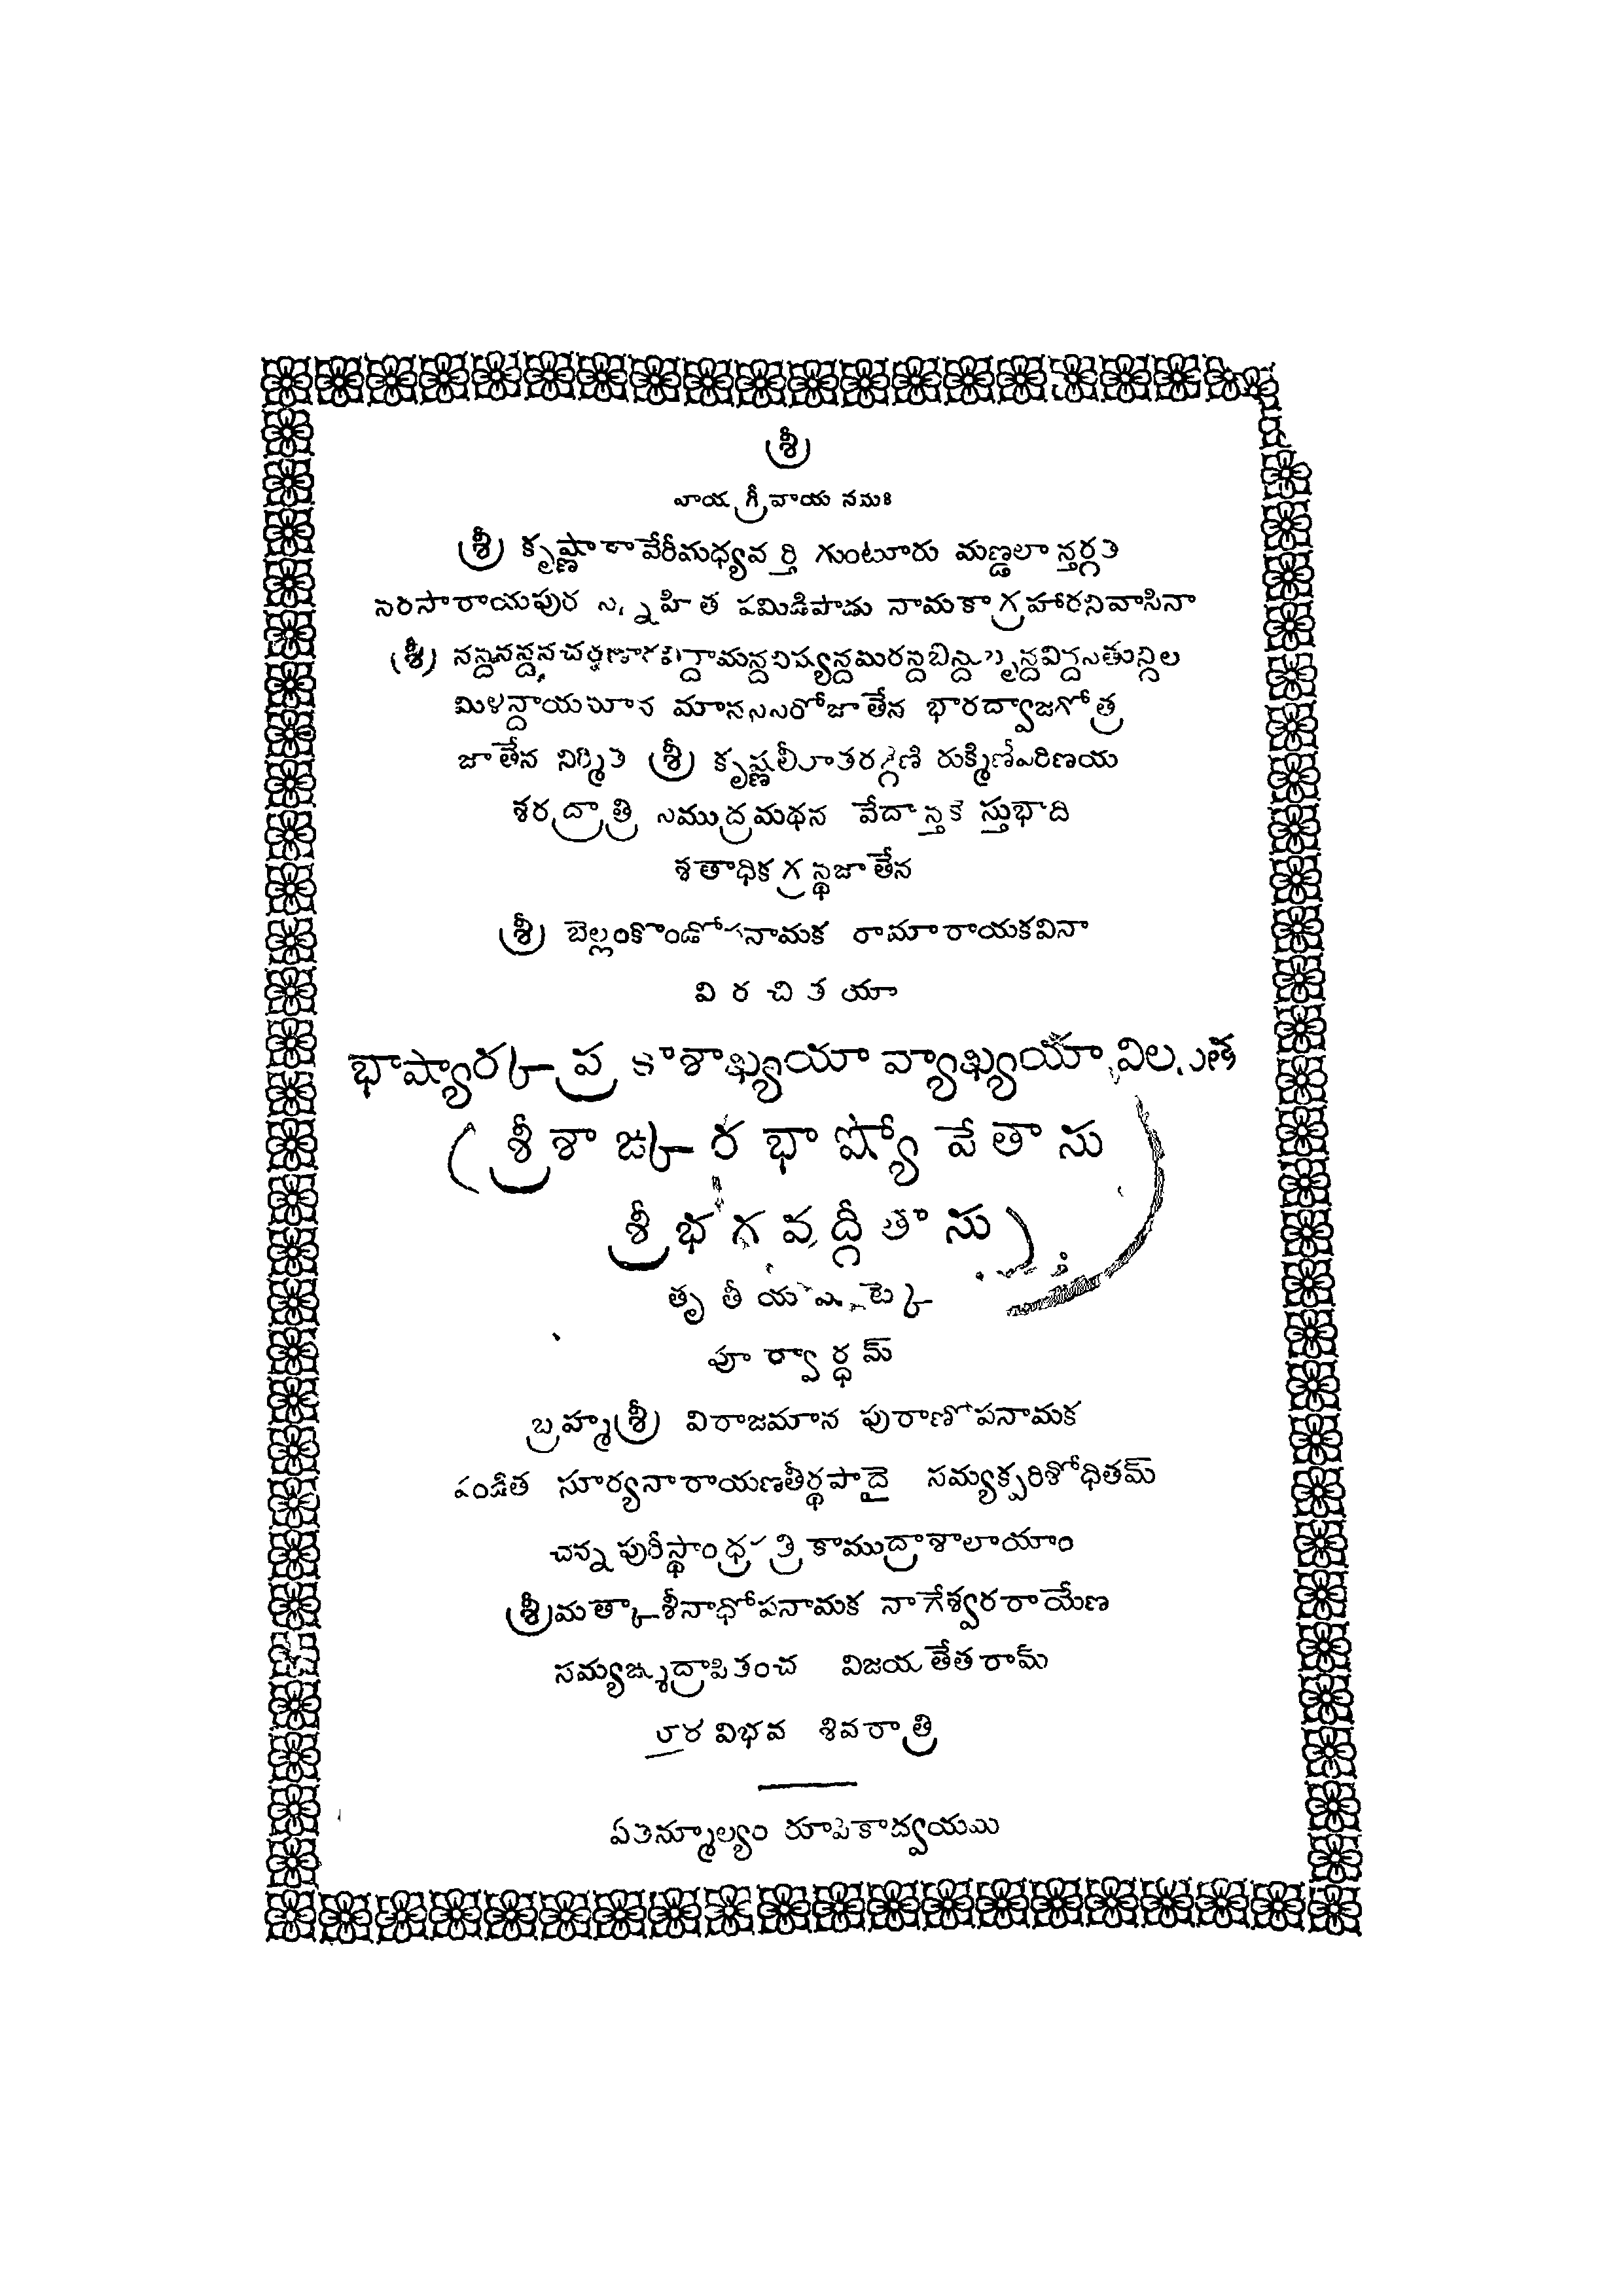 శ్రీ
గ్రీవాయ నమః
శ్రీ కృష్ణాకావేరీమధ్యవర్తి గుంటూరు మణ్డలాన్తర్గత
పమిడిపాడు నామకాగ్రహారనివాసినా
శ్రీ
మానససరోజాతేన భారద్వాజగోత్ర
జాతేన నిర్మిత శ్రీ కృష్ణలీలాతరఙ్గిణి రుక్మిణీపరిణయ
శరద్రాత్రి సముద్రమథన వేదాన్తకౌస్తుభాది
శతాధికగ్రన్థజాతేన
శ్రీ బెల్లంకొండోపనామక రామారాయకవినా
విరచితయా
భాష్యార్కప్రకాశాఖ్యయా వ్యాఖ్యయా విలసిత
(శ్రీశాఙ్కరభాష్యోపేతాసు
శ్రీభగవద్గీతాసు)
తృతీయషట్కే
పూర్వార్ధమ్
బ్రహ్మశ్రీ విరాజమాన పురాణోపనామక
పండిత సూర్యనారాయణతీర్థపాదై సమ్యక్పరిశోధితమ్
చన్నపురీస్థాంధ్రపత్రికాముద్రాశాలాయాం
శ్రీమత్కాశీనాధోపనామక నాగేశ్వరరాయేణ
సమ్యఙ్ముద్రాపితంచ విజయతేతరామ్
విభవ శివరాత్రి
ఏతన్మూల్యం రూపికాద్వయమ్